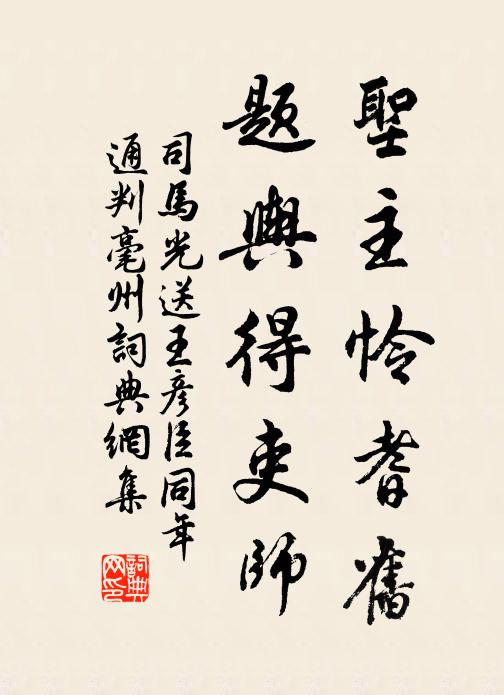 聖主怜耆舊
題輿得吏師
司馬光送王彥臣同年
通判亳州詞典網集
詞典网印